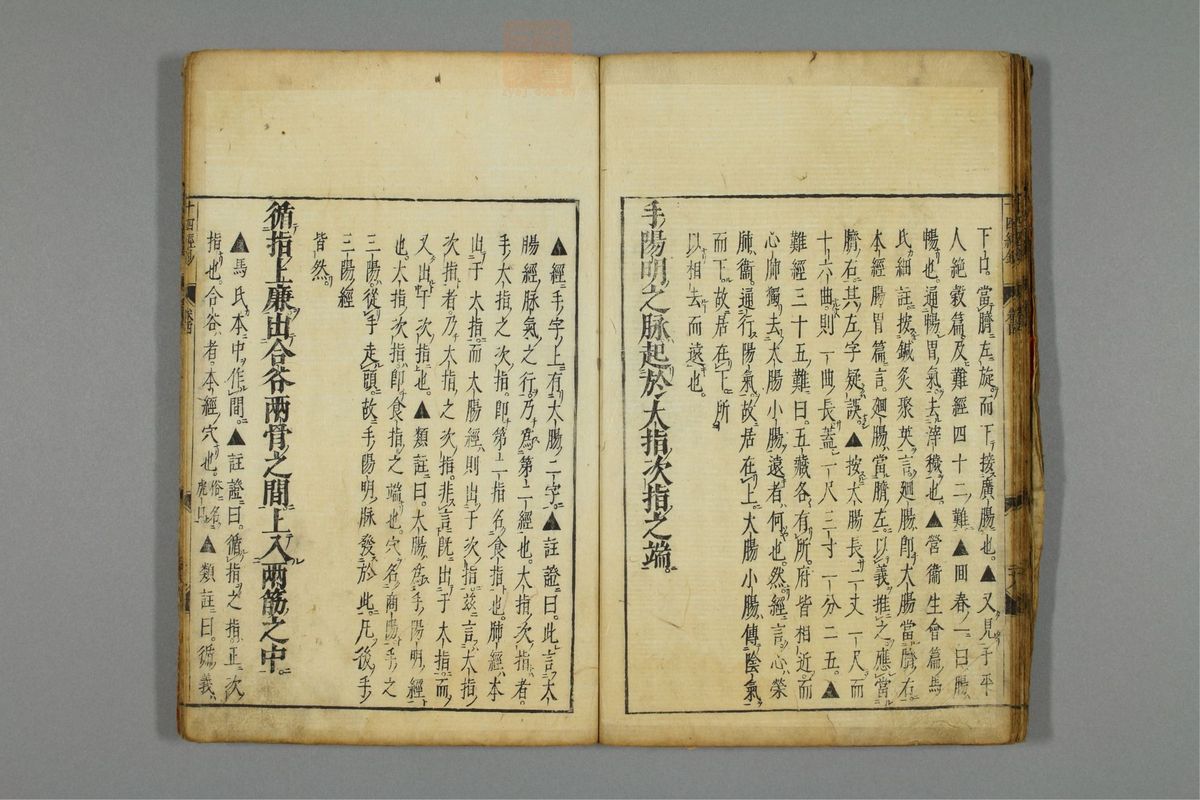 下曰當臍左旋而下接廣腸也▲又見于平
人絕穀篇及難經四十二難▲囬春一曰腸
暢也通暢胃氣去滓穢也▲營衞生會篇馬
氏細註按鍼灸聚英言廻腸卽大腸當臍右
本經腸胃篇言廻腸當臍左以義推之應當
臍右其左字疑誤▲按大腸長二丈一尺而
十六曲則一曲長蓋一尺三寸一分二五▲
難經三十五難曰五藏各有所府皆相近而
心肺獨去大腸小腸遠者何也然經言心榮
肺衞通行陽氣故居在上大腸小腸傳陰氣
而下故居在下所
以相去而遠也
手陽明之脉起於大指次指之端
▲經手字上有大腸二字▲註證曰此言大
腸經脉氣之行乃爲第二經也大指次指者
手大指之次指卽第二指名食指也肺經本
出于大指而大腸經則出于次指茲言大指
次指者乃大指之次指非言旣出于大指而
又出于次指也▲類註曰大腸爲手陽明經
也大指次指卽食指之端也穴名商陽手之
三陽從手走頭故手陽明脉發於此凡後手
三陽經
皆然
循指上廉出合谷兩骨之間上入兩筋之中
▲馬氏本中作間▲註證曰循指之指正次
指也合谷者本經穴也俗名虎口▲類註曰循義